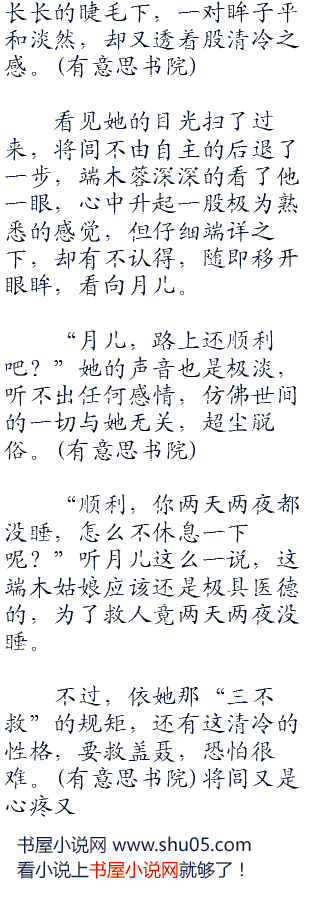 长长的睫毛下，一对眸子平
和淡然，却又透着股清冷之
感。(有意思书院)
看见她的目光扫了过
来，将闾不由自主的后退了
一步，端木蓉深深的看了他
一眼，心中升起一股极为熟
悉的感觉，但仔细端详之
下，却有不认得，随即移开
眼眸，看向月儿。
“月儿，路上还顺利
吧？”她的声音也是极淡，
听不出任何感情，仿佛世间
的一切与她无关，超尘脱
俗。(有意思书院)
“顺利，你两天两夜都
没睡，怎么不休息一下
呢？”听月儿这么一说，这
端木姑娘应该还是极具医德
的，为了救人竟两天两夜没
睡。
不过，依她那“三不
救”的规矩，还有这清冷的
性格，要救盖聂，恐怕很
难。(有意思书院)将闾又是
心疼又
书屋小说网 www.shu05.com
看小说上书屋小说网就够了！